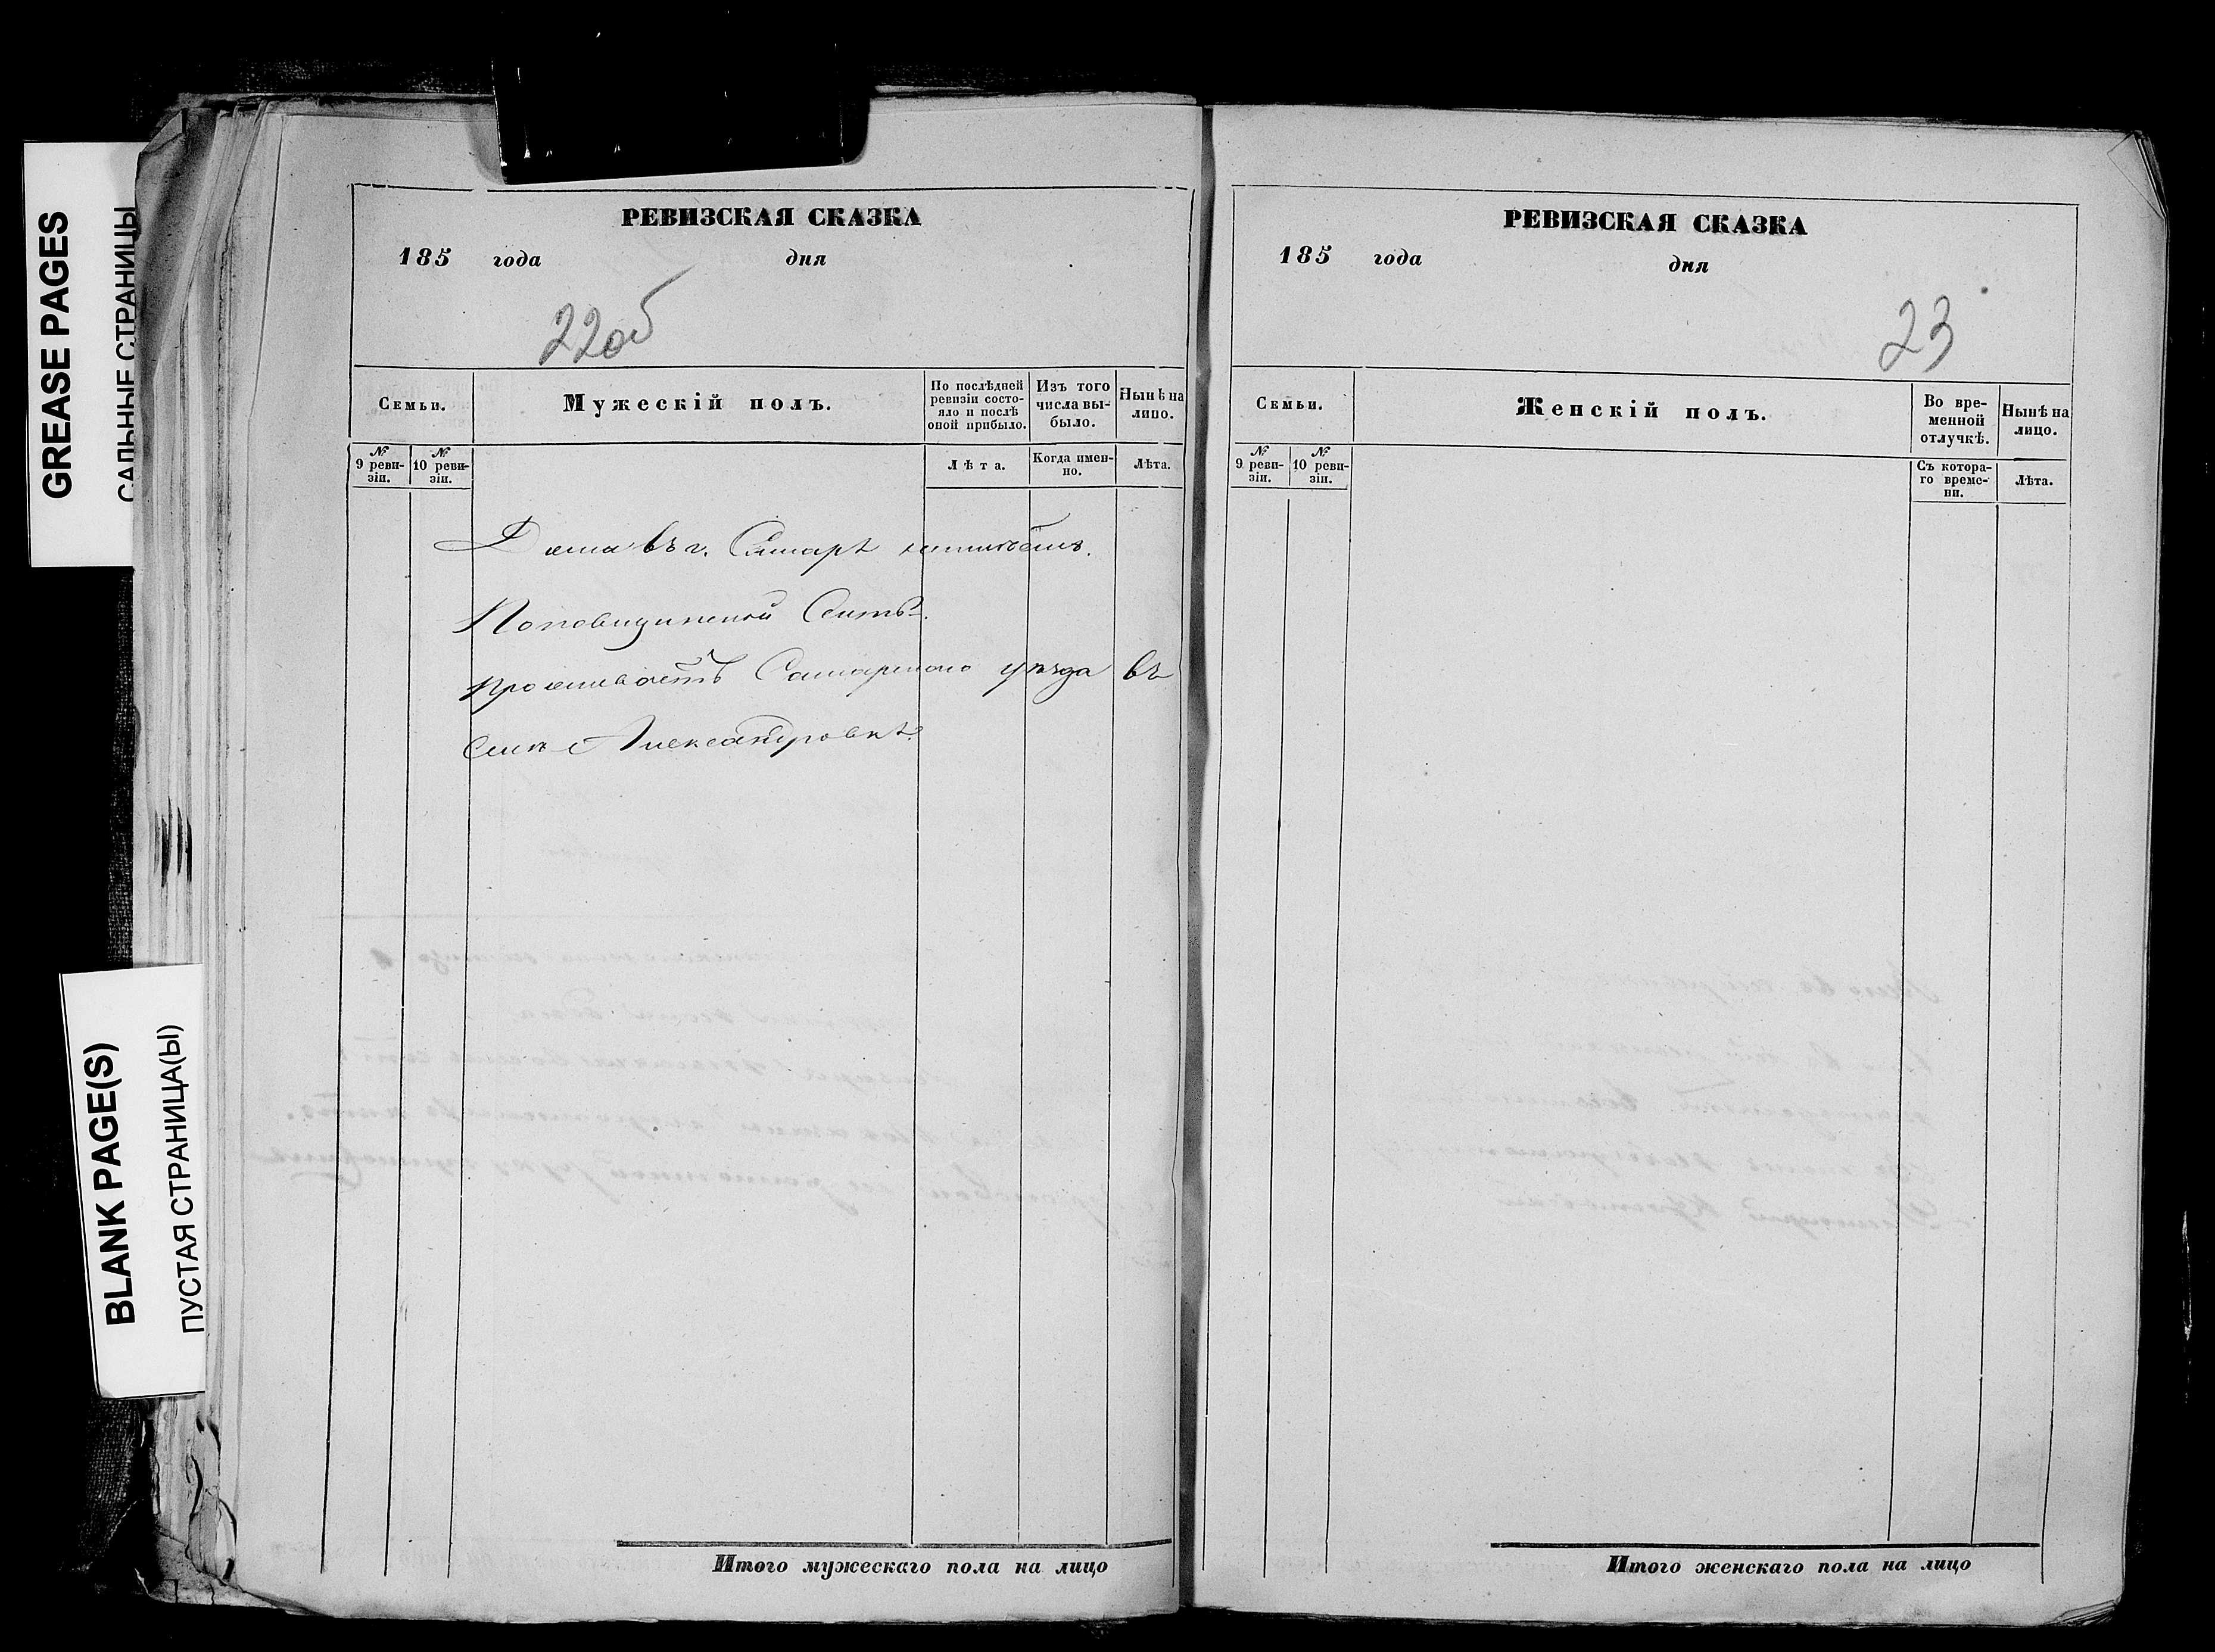 GREASE PAGES
САЛЬНЫЕ СТРАНИЦЫ
BLANK PAGE(S)
ПУСТАЯ СТРАНИЦА(Ы)
РЕВИЗСКАЯ СКАЗКА
185 года дня
22об
Семьи.
Мужескій полъ.
По послѣдней ревизіи состояло и послѣ оной прибыло.
Изъ того числа выбыло.
Нынѣ на лицо.
№ 9 ревизіи.
№ 10 ревизіи.
Лѣта.
Когда именно.
Лѣта.
Дома въ г. Самарѣ
проживаетъ Самарскаго уѣзда въ
селѣ Александровкѣ.
Итого мужескаго пола на лицо
РЕВИЗСКАЯ СКАЗКА
185 года дня
23
Семьи.
Женскій полъ.
Во временной отлучкѣ.
Нынѣ на лицо.
№ 9 ревизіи.
№ 10 ревизіи.
Съ котораго времени.
Лѣта.
Итого женскаго пола на лицо